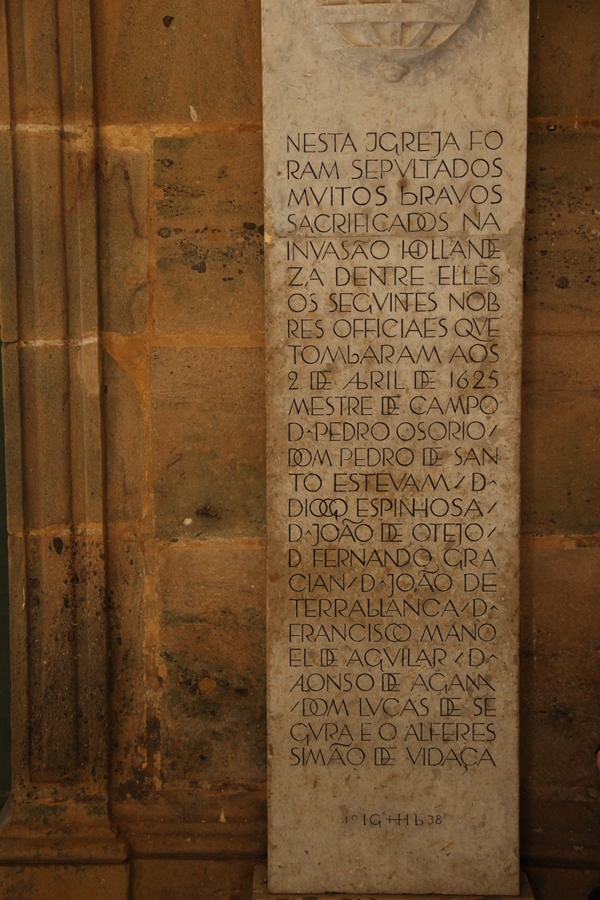 NESTA JGREJA FO
RAM SEPVLTADOS
MVITOS bRAVOS
SACRIFICADOS NA
INVASÃO HOLLANDE
ZA DENTRE ELLES
OS SEGVINTES NOB
RES OFFICIAES QVE
TOMbARAM AOS
2 DE AbRIL DE 1625
MESTRE DE CAMPO
D-PEDRO OSORIO/
DOM PEDRO DE SAN
TO ESTEVAM/D-
DIOGO ESPINHOSA/
D-JOÃO DE OTEJO/
D FERNANDO GRA
CIAN/D-JOÃO DE
TERRAbLANCA/D-
FRANCISCO MANO
EL DE AGVILAR/D-
ALONSO DE AGANA
/DOM LVCAS DE SE
GVRA E O ALFERES
SIMÃO DE VIDAÇA
19 IG+Hb 38